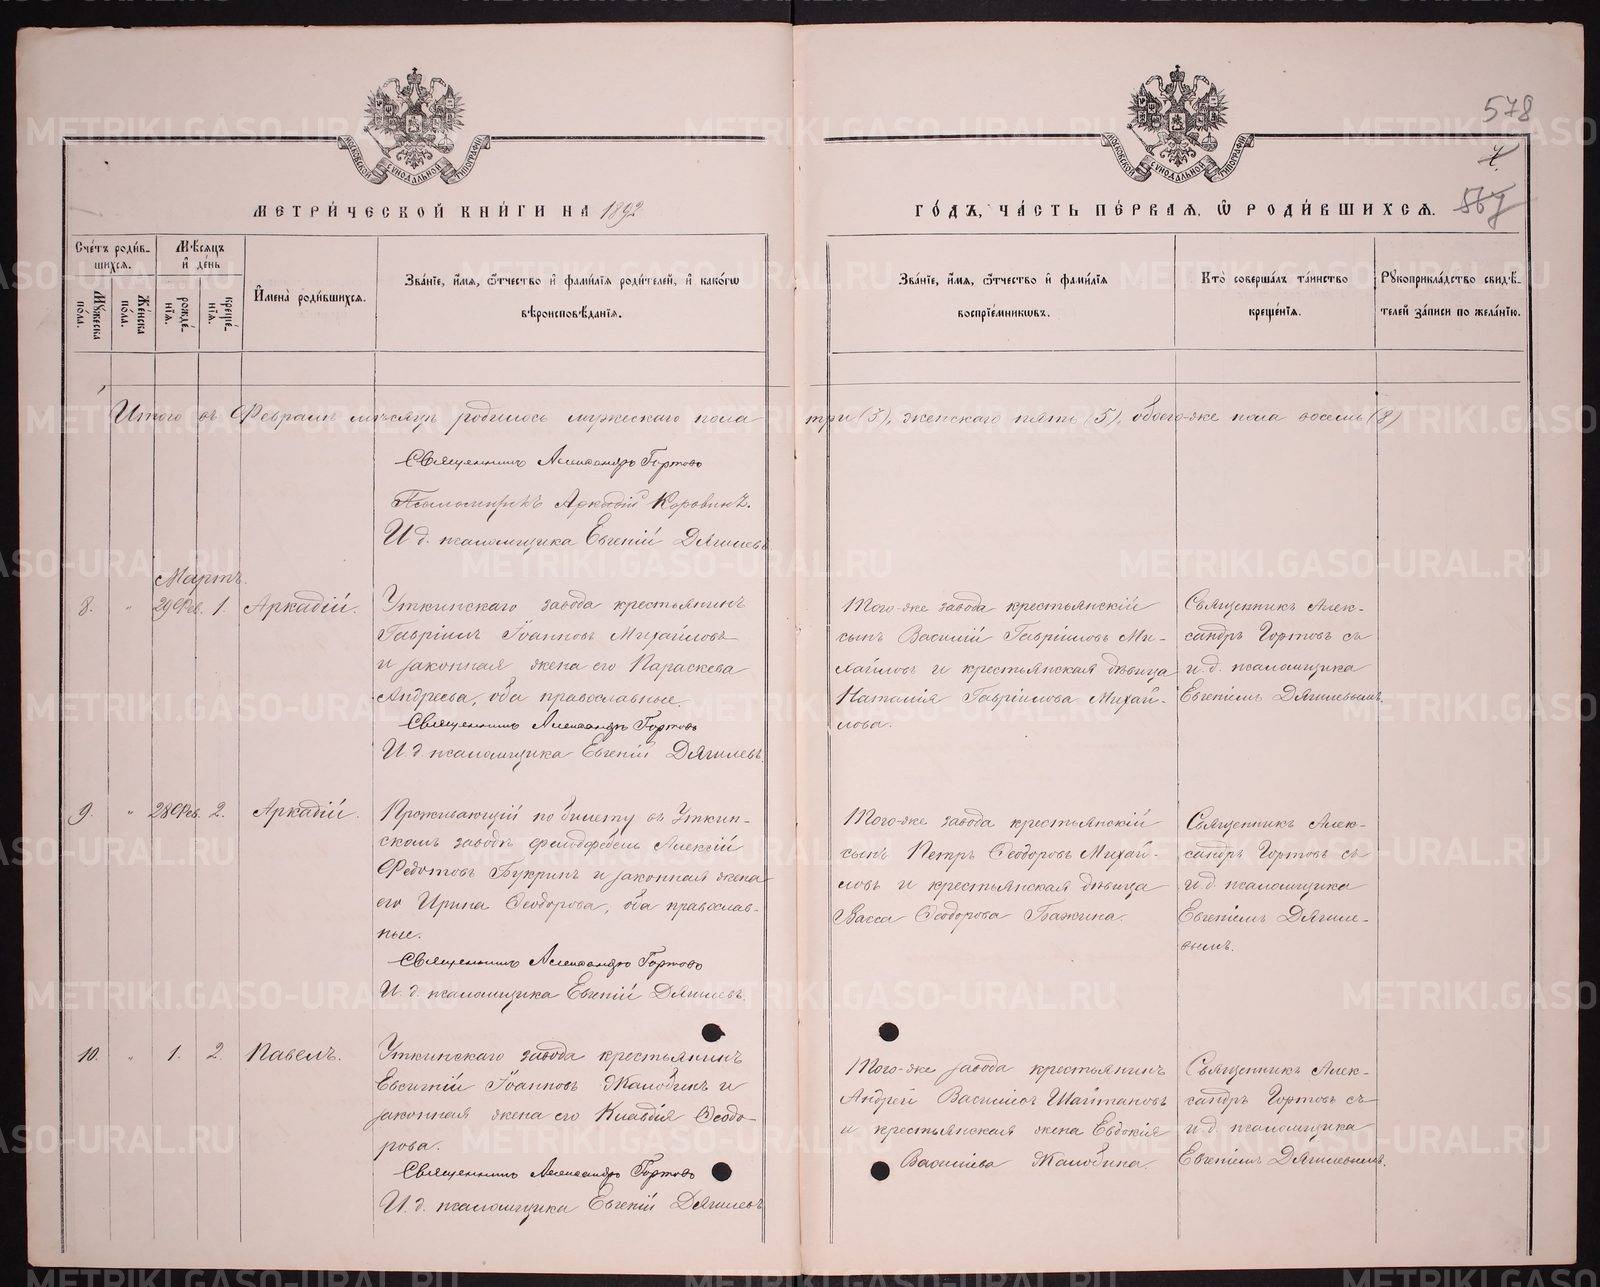 578
7.
567
МОСКОВСКОЙ СУНОДАЛЬНОЙ ТИПОГРАФІИ
МОСКОВСКОЙ СУНОДАЛЬНОЙ ТИПОГРАФІИ
МЕТРИ́ЧЕСКОЙ КНИ́ГИ НА 1892
ГО́ДЪ, ЧА́СТЬ ПЕ́РВАЯ, Ѡ҆ РОДИ́ВШИХСЯ.
Сче́тъ роди́в-
шихся.
Мѣ́сяцъ
и҆ де́нь
Мꙋ́жеска по́ла.
Же́нска по́ла.
рожде́-нїя.
креще́-нїя.
И҆мена̀ роди́вшихся.
Зва́нїе, и҆́мя, ѻ҆́тчество и҆ фами́лїя роди́телей, и҆ како́гѡ
вѣроисповѣ́данїя.
Зва́нїе, и҆́мя, ѻ҆́тчество и҆ фами́лїя
воспрїе́мникѡвъ.
Кто̀ соверша́лъ та́инство
креще́нїя.
Рꙋкоприкла́дство свидѣ́-
телей за́писи по жела́нїю.
Итого въ Февралѣ мѣсяцѣ родилось мужескаго пола три (3), женскаго пять (5), обоего-же пола восемь (8)
Священникъ Александръ Гортовъ
Псаломщикъ Аркадій Коровинъ.
И. д. псаломщика Евгеній Дягилевъ
Мартъ.
8. " 29 Фев. 1. Аркадій.
Уткинскаго завода крестьянинъ
Гавріилъ Іоанновъ Михайловъ
и законная жена его Параскева
Андреева, оба православные.
Священникъ Александръ Гортовъ
И. д. псаломщика Евгеній Дягилевъ.
Того-же завода крестьянскій
сынъ Василій Гавріиловъ Ми-
хайловъ и крестьянская дѣвица
Наталія Гавріилова Михай-
лова.
Священникъ Алек-
сандръ Гортовъ съ
и. д. псаломщика
Евгеніемъ Дягилевымъ.
9. " 28 Фев. 2. Аркадій.
Проживающій по билету въ Уткин-
скомъ заводѣ фельдфебель Алексій
Федотовъ Букринъ и законная жена
его Ирина Ѳеодорова, оба православ-
ные.
Священникъ Александръ Гортовъ
И. д. псаломщика Евгеній Дягилевъ.
Того-же завода крестьянскій
сынъ Петръ Ѳеодоровъ Михай-
ловъ и крестьянская дѣвица
Васса Ѳеодорова Бажина.
Священникъ Алек-
сандръ Гортовъ съ
и. д. псаломщика
Евгеніемъ Дягиле-
вымъ.
10. " 1. 2. Павелъ.
Уткинскаго завода крестьянинъ
Евсигній Іоанновъ Жалобинъ и
законная жена его Клавдія Ѳеодо-
рова.
Священникъ Александръ Гортовъ
И. д. псаломщика Евгеній Дягилевъ
Того-же завода крестьянинъ
Андрей Василіевъ Шайтановъ
и крестьянская жена Евдокія
Василіева Жалобина.
Священникъ Алек-
сандръ Гортовъ съ
и. д. псаломщика
Евгеніемъ Дягилевымъ.
METRIKI.GASO-URAL.RU